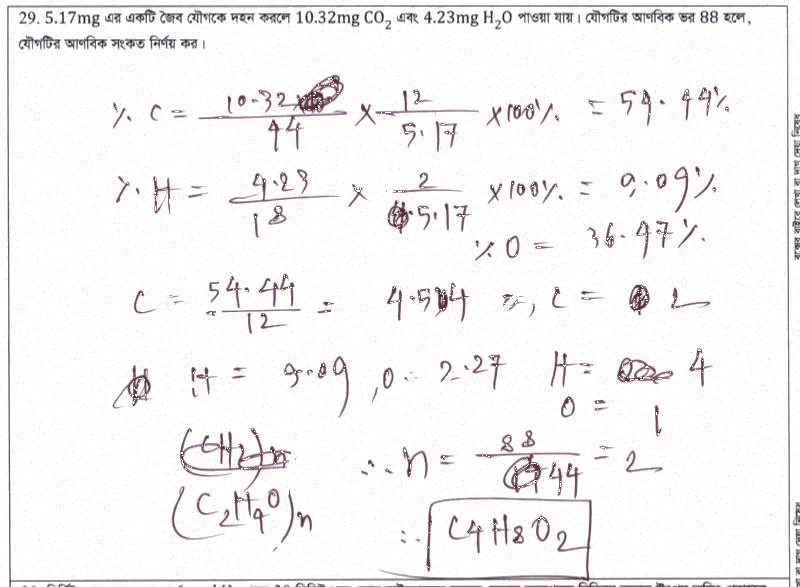 29. 5.17mg এর একটি জৈব যৌগকে দহন করলে 10.32mg CO₂ এবং 4.23mg H₂O পাওয়া যায়। যৌগটির আণবিক ভর 88 হলে,
যৌগটির আণবিক সংকেত নির্ণয় কর।
% C = 10.32/44 × 12/5.17 × 100% = 54.44%
% H = 4.23/18 × 2/5.17 × 100% = 9.09%
% O = 36.47%
C = 54.44/12 = 4.54 ≈, C = 2
H = 9.09, O = 2.27 H = 4
O = 1
(CH₂)n ∴ n = 88/44 = 2
(C₂H₄O)n ∴ C₄H₈O₂